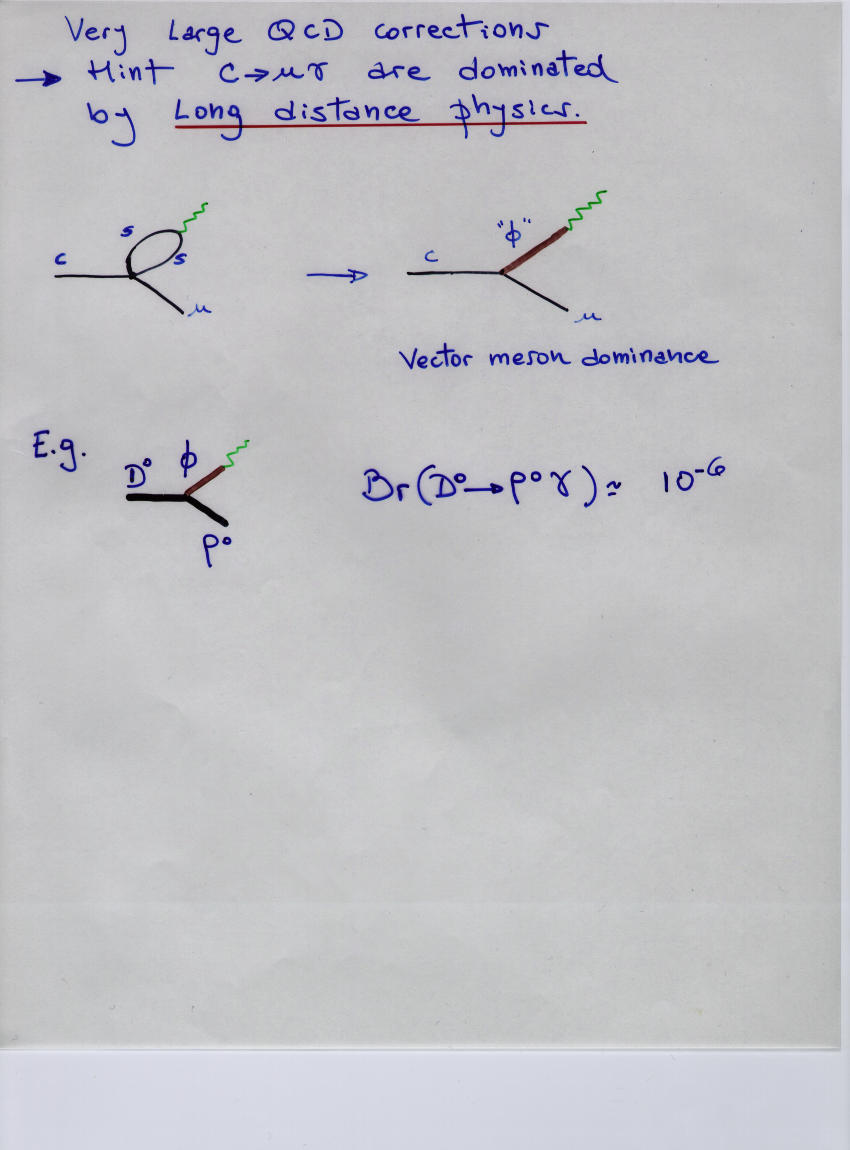 Very Large QCD corrections
→ Hint c→uγ are dominated
by Long distance physics.
s
c
s
u
"ϕ"
c
u
Vector meson dominance
E.g.
D⁰ ϕ
ρ⁰
Br(D⁰→ρ⁰γ) ≃ 10⁻⁶